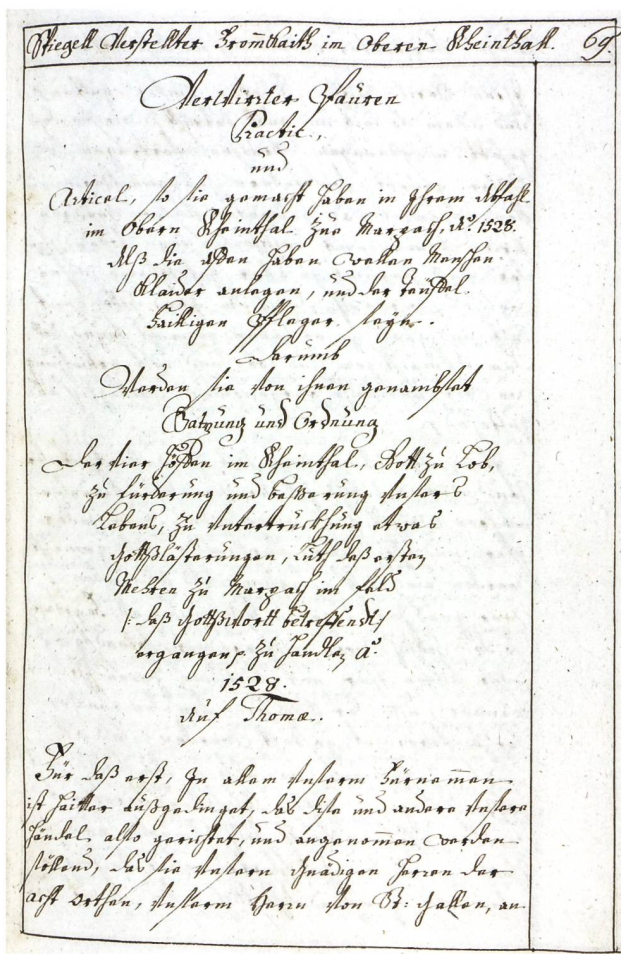 Spiegell Verstellter Frommkaith im Oberen Rheinthall. 69
Verwirter Pauren
Practic,
und
Articel, so sie gemacht haben in Ihrem Abfahl
im Obern Rheinthal zue Marpach, Aº. 1528.
Alß die Affen haben wellen Menschen
Klaider anlegen, und der Teüffel
Hailligen Pfleger seyn.
Darumb
Werden sie von ihnen genambstet
Satzung und Ordnung
Der vier Höffen im Rheinthal, Gott zu Lob,
zu fürderung und beßerung unsers
Lebens, zu untertruckhung etwas
Gottßlästerungen, Luth deß ersten
Mehren zu Marpach im feld
/: daß Gottßwortt betreffendt :/
ergangen, zu handlen Aº.
1528.
Auf Thomæ.
Für daß erst, In allem unserm fürnemmen
ist haitter außgedinget, daß dise und andere unsere
händel also gerichtet, und angenommen werden
söllend, daß sie unsern Gnädigen herren der
acht orthen, unserm Herrn von St: Gallen, an